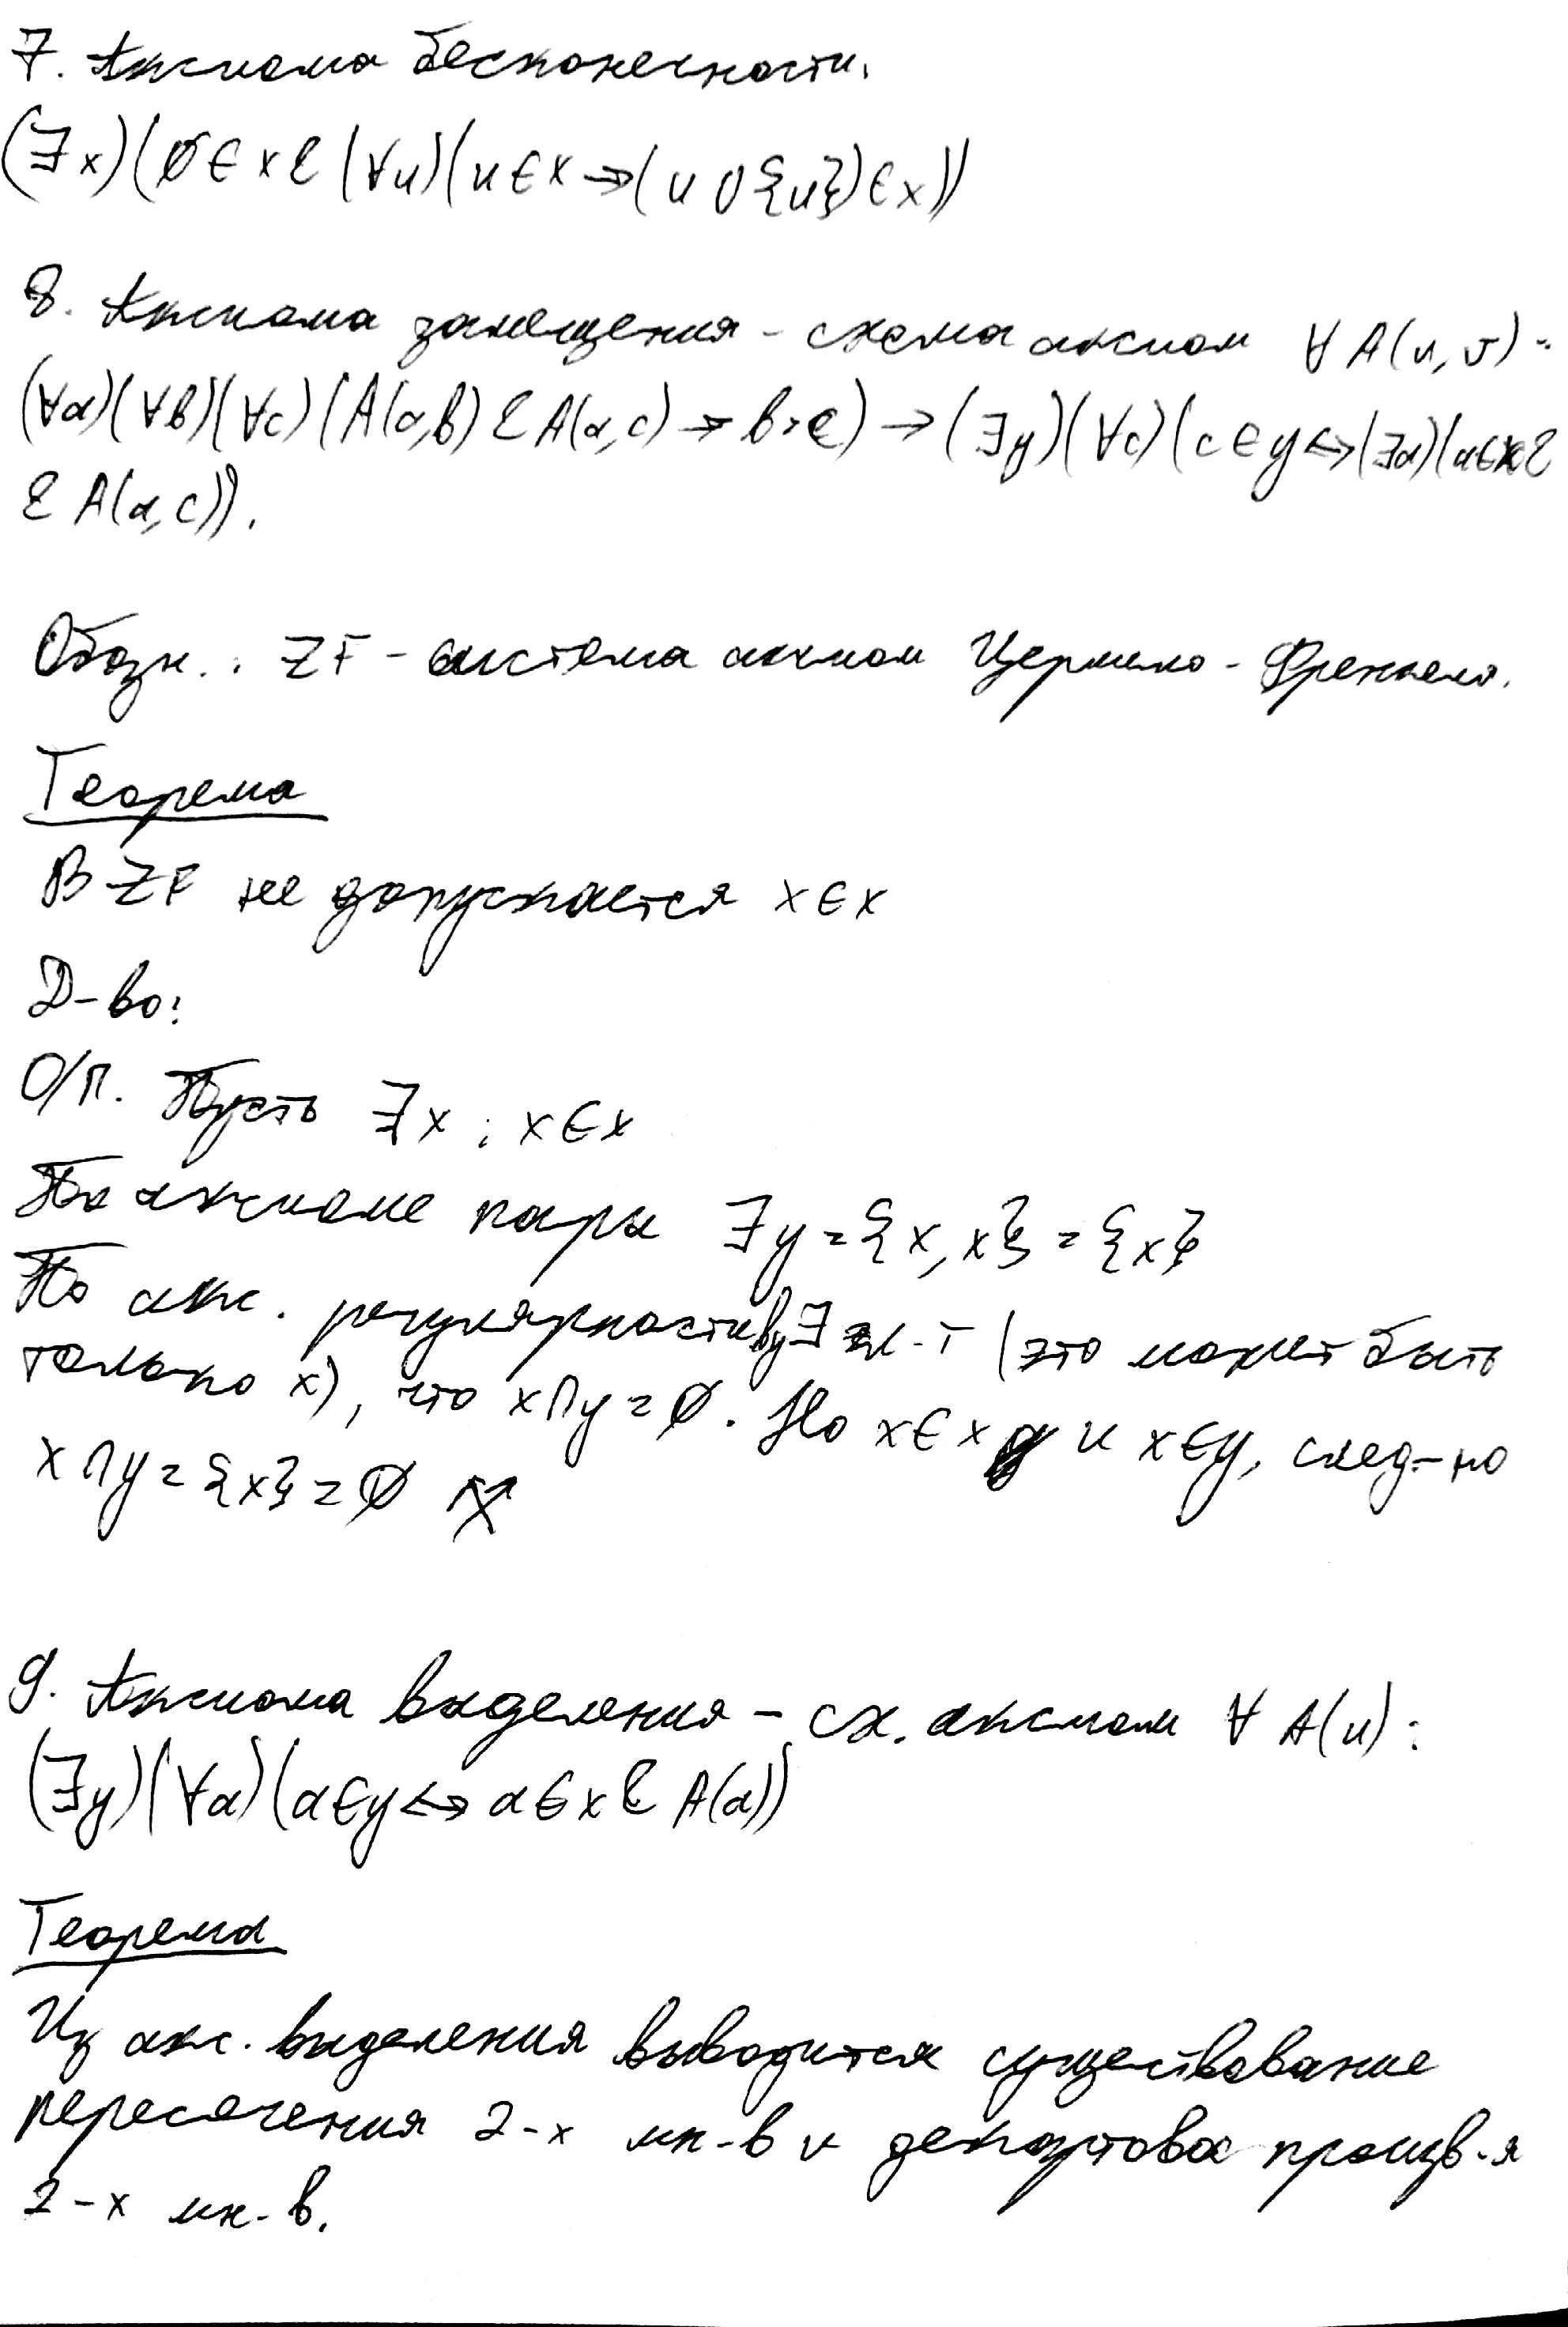 7. Аксиома бесконечности.
(∃x)(∅∈x & (∀u)(u∈x→(u∪{u})∈x))
8. Аксиома замещения - схема аксиом ∀ A(u, v):
(∀a)(∀b)(∀c)(A(a,b) & A(a,c) → b=c) → (∃y)(∀c)(c∈y↔(∃a)(a∈x &
& A(a,c)).
Обозн.: ZF - система аксиом Цермело - Френкеля.
Теорема
В ZF не допускается x∈x
Д-во:
О/П. Пусть ∃x : x∈x
По аксиоме пары ∃y = {x, x} = {x}
По акс. регулярности в y ∃ эл-т (это может быть
только x), что x∩y = ∅. Но x∈x и x∈y, след-но
x∩y = {x} = ∅ X
9. Аксиома выделения - сх. аксиом ∀ A(u):
(∃y)(∀a)(a∈y↔a∈x & A(a))
Теорема
Из акс. выделения выводится существование
пересечения 2-х мн-в и декартова произв-я
2-х мн-в.